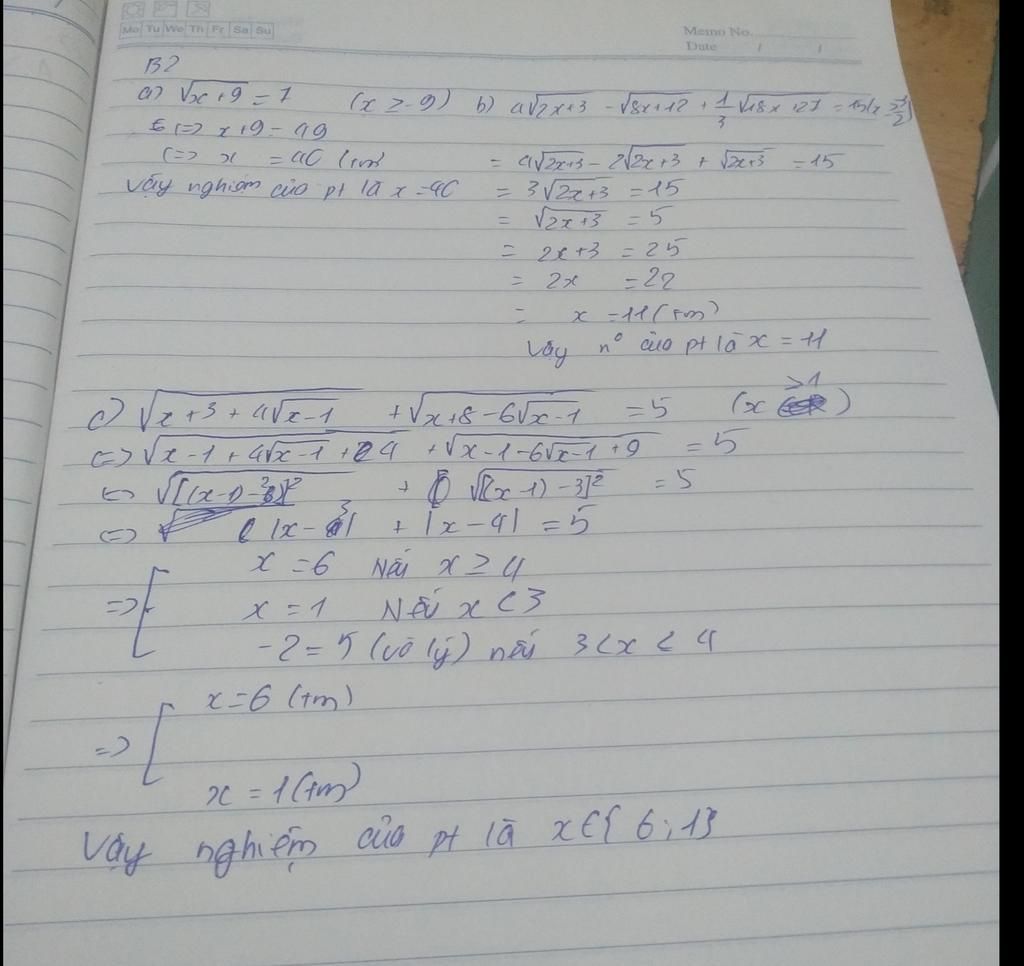 Mo Tu We Th Fr Sa Su
Memo No.
Date / /
B2
a) √x+9 = 7 (x ≥ -9)
<=> x+9 = 49
<=> x = 40 (tm)
Vậy nghiệm của pt là x = 40
b) 4√2x+3 - √8x+12 + 1/3 √18x+27 = 15 (x ≥ -3/2)
= 4√2x+3 - 2√2x+3 + √2x+3 = 15
= 3√2x+3 = 15
= √2x+3 = 5
= 2x+3 = 25
= 2x = 22
= x = 11 (tm)
Vậy n° của pt là x = 11
c) √x+3+4√x-1 + √x+8-6√x-1 = 5 (x ≥1)
<=> √x-1+4√x-1+4 + √x-1-6√x-1+9 = 5
<=> √[(x-1)-2]² + √[(x-1)-3]² = 5
<=> |x-3| + |x-4| = 5
=> [ x = 6 Nếu x ≥ 4
x = 1 Nếu x < 3
-2 = 5 (vô lý) nếu 3 < x < 4
=> [ x = 6 (tm)
x = 1 (tm)
Vậy nghiệm của pt là x ∈ { 6 ; 1}